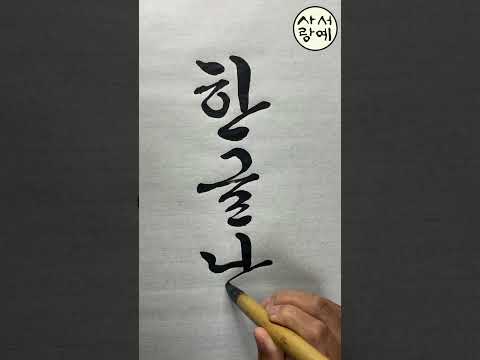 한글나
서예
사랑